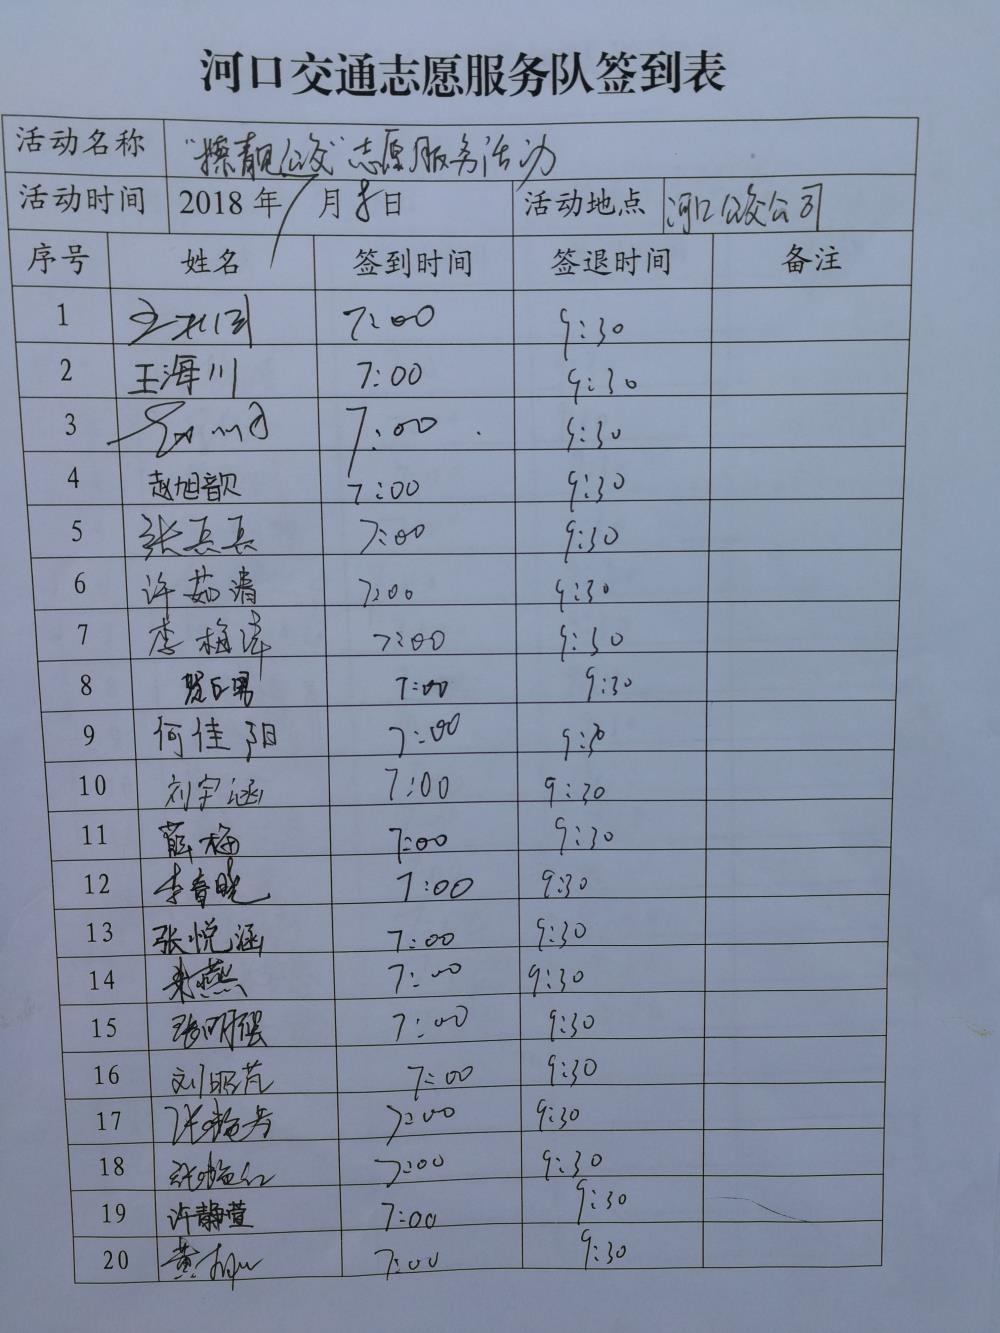 河口交通志愿服务队签到表
活动名称 “擦靓公交”志愿服务活动
活动时间 2018年 月8日 活动地点 河口公交公司
序号 姓名 签到时间 签退时间 备注
1 7:00 9:30
2 王海川 7:00 9:30
3 7:00 9:30
4 赵旭歆 7:00 9:30
5 张真真 7:00 9:30
6 许茹清 7:00 9:30
7 李梅 7:00 9:30
8 7:00 9:30
9 何佳阳 7:00 9:30
10 刘宇涵 7:00 9:30
11 薛梅 7:00 9:30
12 李春晓 7:00 9:30
13 张悦涵 7:00 9:30
14 燕 7:00 9:30
15 张明强 7:00 9:30
16 刘昭 7:00 9:30
17 7:00 9:30
18 7:00 9:30
19 许静萱 7:00 9:30
20 黄 7:00 9:30